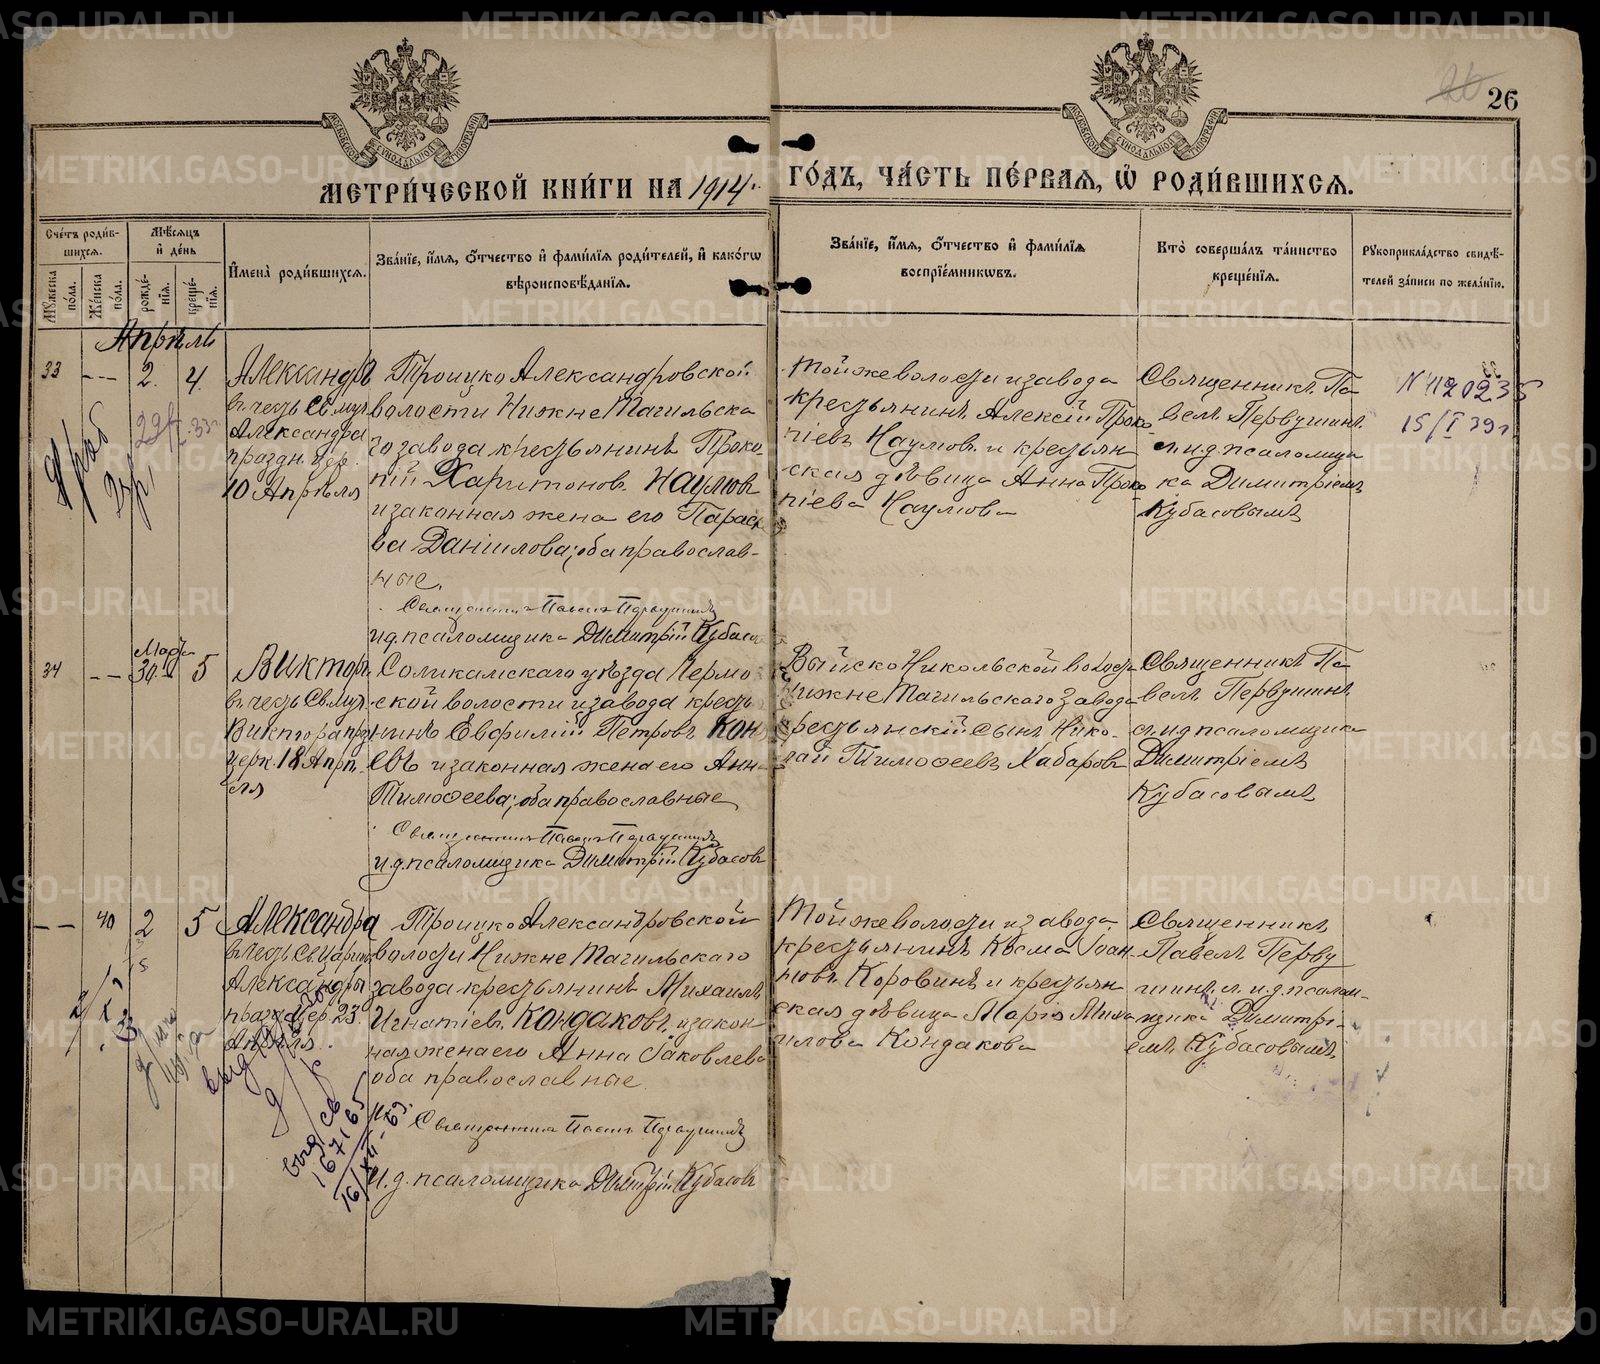 26
МЕТРИ́ЧЕСКОЙ КНИ́ГИ НА 1914. ГО́ДЪ, ЧА́СТЬ ПЕ́РВАЯ, Ѡ РОДИ́ВШИХСЯ.
МОСКОВСКОЙ СѴНОДАЛЬНОЙ ТИПОГРАФІИ
МОСКОВСКОЙ СѴНОДАЛЬНОЙ ТИПОГРАФІИ
Сче́тъ роди́в-
шихся.
Мꙋжеска
по́ла.
Же́нска
по́ла.
Мѣ́сяцъ
и҆ де́нь
рожде́-
нїя.
креще́-
нїя.
И҆мена̀ роди́вшихся.
Зва́нїе, и҆́мя, ѻ҆́тчество и҆ фами́лїя роди́телей, и҆ како́гѡ
вѣроисповѣ́данїя.
Зва́нїе, и҆́мя, ѻ҆́тчество и҆ фами́лїя
воспрїе́мникѡвъ.
Кто̀ соверша́лъ та́инство
креще́нїя.
Рꙋкоприкла́дство свидѣ́-
телей за́писи по жела́нїю.
Апрѣль
33
--
2.
4.
Александръ
въ честь Св. муч.
Александра
праздн. цер.
10 Апрѣля
Троицко Александровской
волости Нижне Тагильска
го завода крестьянинъ Проко-
пій Харитоновъ Наумовъ
и законная жена его Параск
ва Даніилова; оба православ-
ные.
Священникъ Павелъ Первушинъ
и. д. псаломщика Димитрій Кубасов
Той же волости и завода
крестьянинъ Алексій Проко-
піевъ Наумовъ и крестьян
ская дѣвица Анна Проко
піева Наумова
Священникъ Па
велъ Первушинъ
с и. д. псаломщи
ка Димитріемъ
Кубасовымъ
15/I 39 г
34
--
Марта
30.
5
Викторъ
въ честь Св. муч.
Виктора пр.
церк. 18 Апрѣ-
ля
Соликамскаго уѣзда Чермо
ской волости и завода кресть
нинъ Евфимій Петровъ Кон
евъ и законная жена его Анн
Тимоѳеева; оба православные
Священникъ Павелъ Первушинъ
и. д. псаломщика Димитрій Кубасовъ
Выйско Никольской волости
Нижне Тагильскаго завода
крестьянскій сынъ Нико-
лай Тимоѳеевъ Хабаровъ
Священникъ Па
велъ Первушинъ
с и. д. псаломщика
Димитріемъ
Кубасовымъ
--
40
2
5
Александра
въ честь Св. Царицы
Александры
празд. цер. 23.
Апрѣля.
Троицко Александровской
волости Нижне Тагильскаго
завода крестьянинъ Михаилъ
Игнатіевъ Кондаковъ и закон
ная жена его Анна Іаковлева
оба православные
Священникъ Павелъ Первушинъ
И. д. псаломщика Димитрій Кубасовъ
Той же волости и завода
крестьянинъ Косма Іоан-
новъ Коровинъ и крестьян
ская дѣвица Марія Миха
илова Кондакова
Священникъ
Павелъ Перву
шинъ с и. д. псалом-
щика Димитрі-
емъ Кубасовымъ
167165
16/XII-69.
METRIKI.GASO-URAL.RU